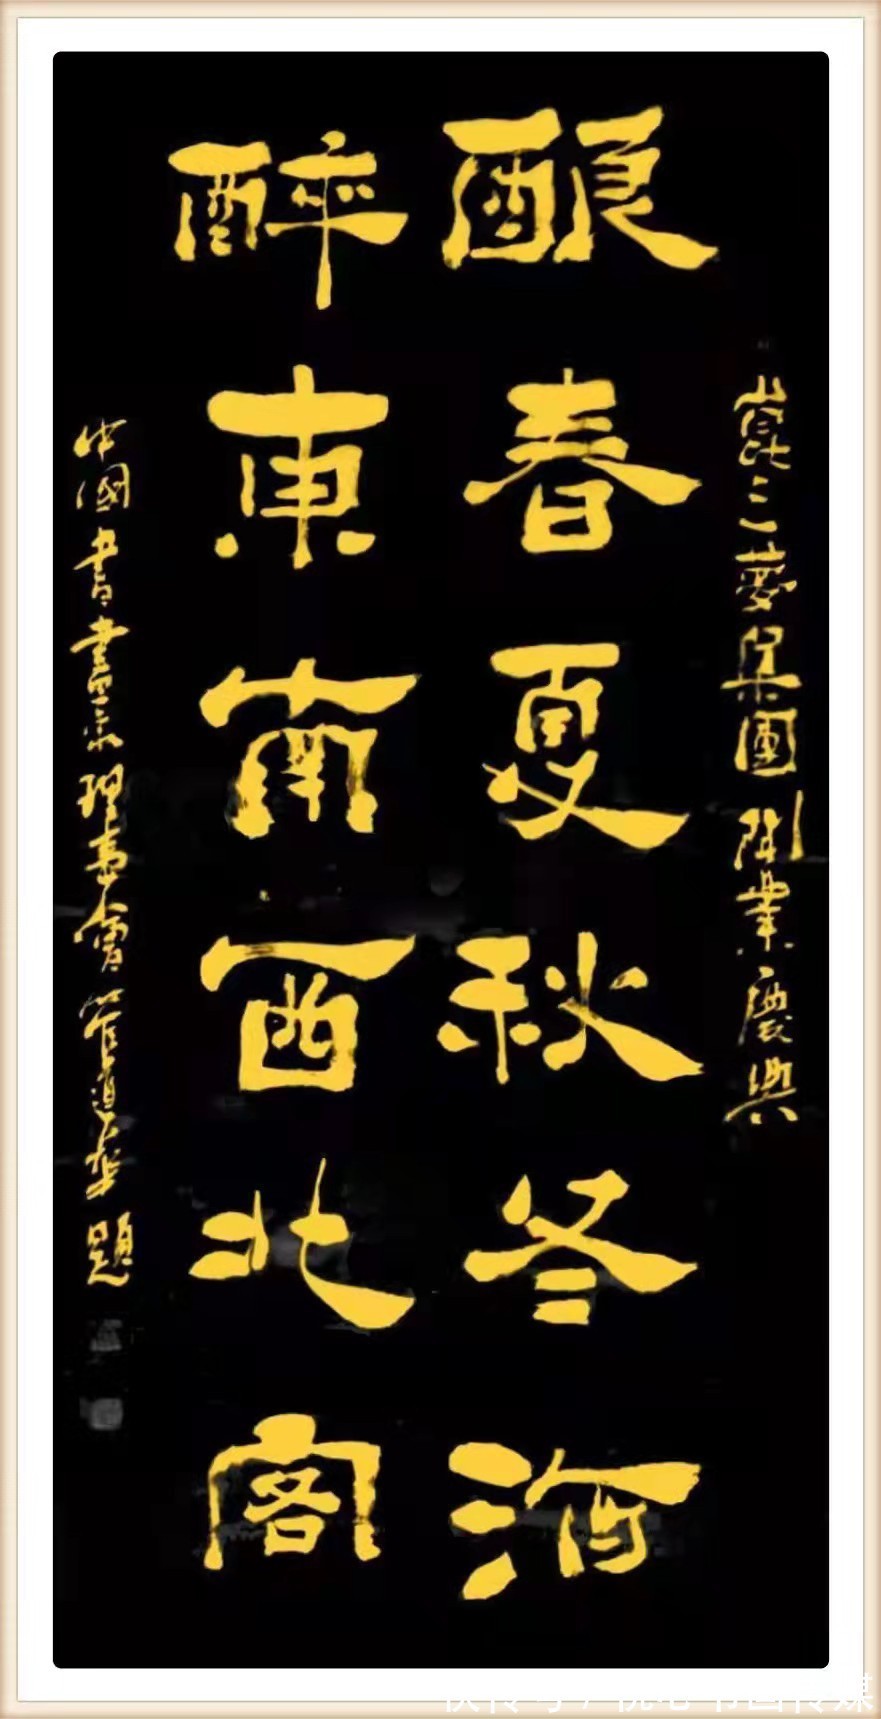 崑三夢集團開業慶典
酿春夏秋冬酒
醉東南西北客
中國書畫家理事會管道華題